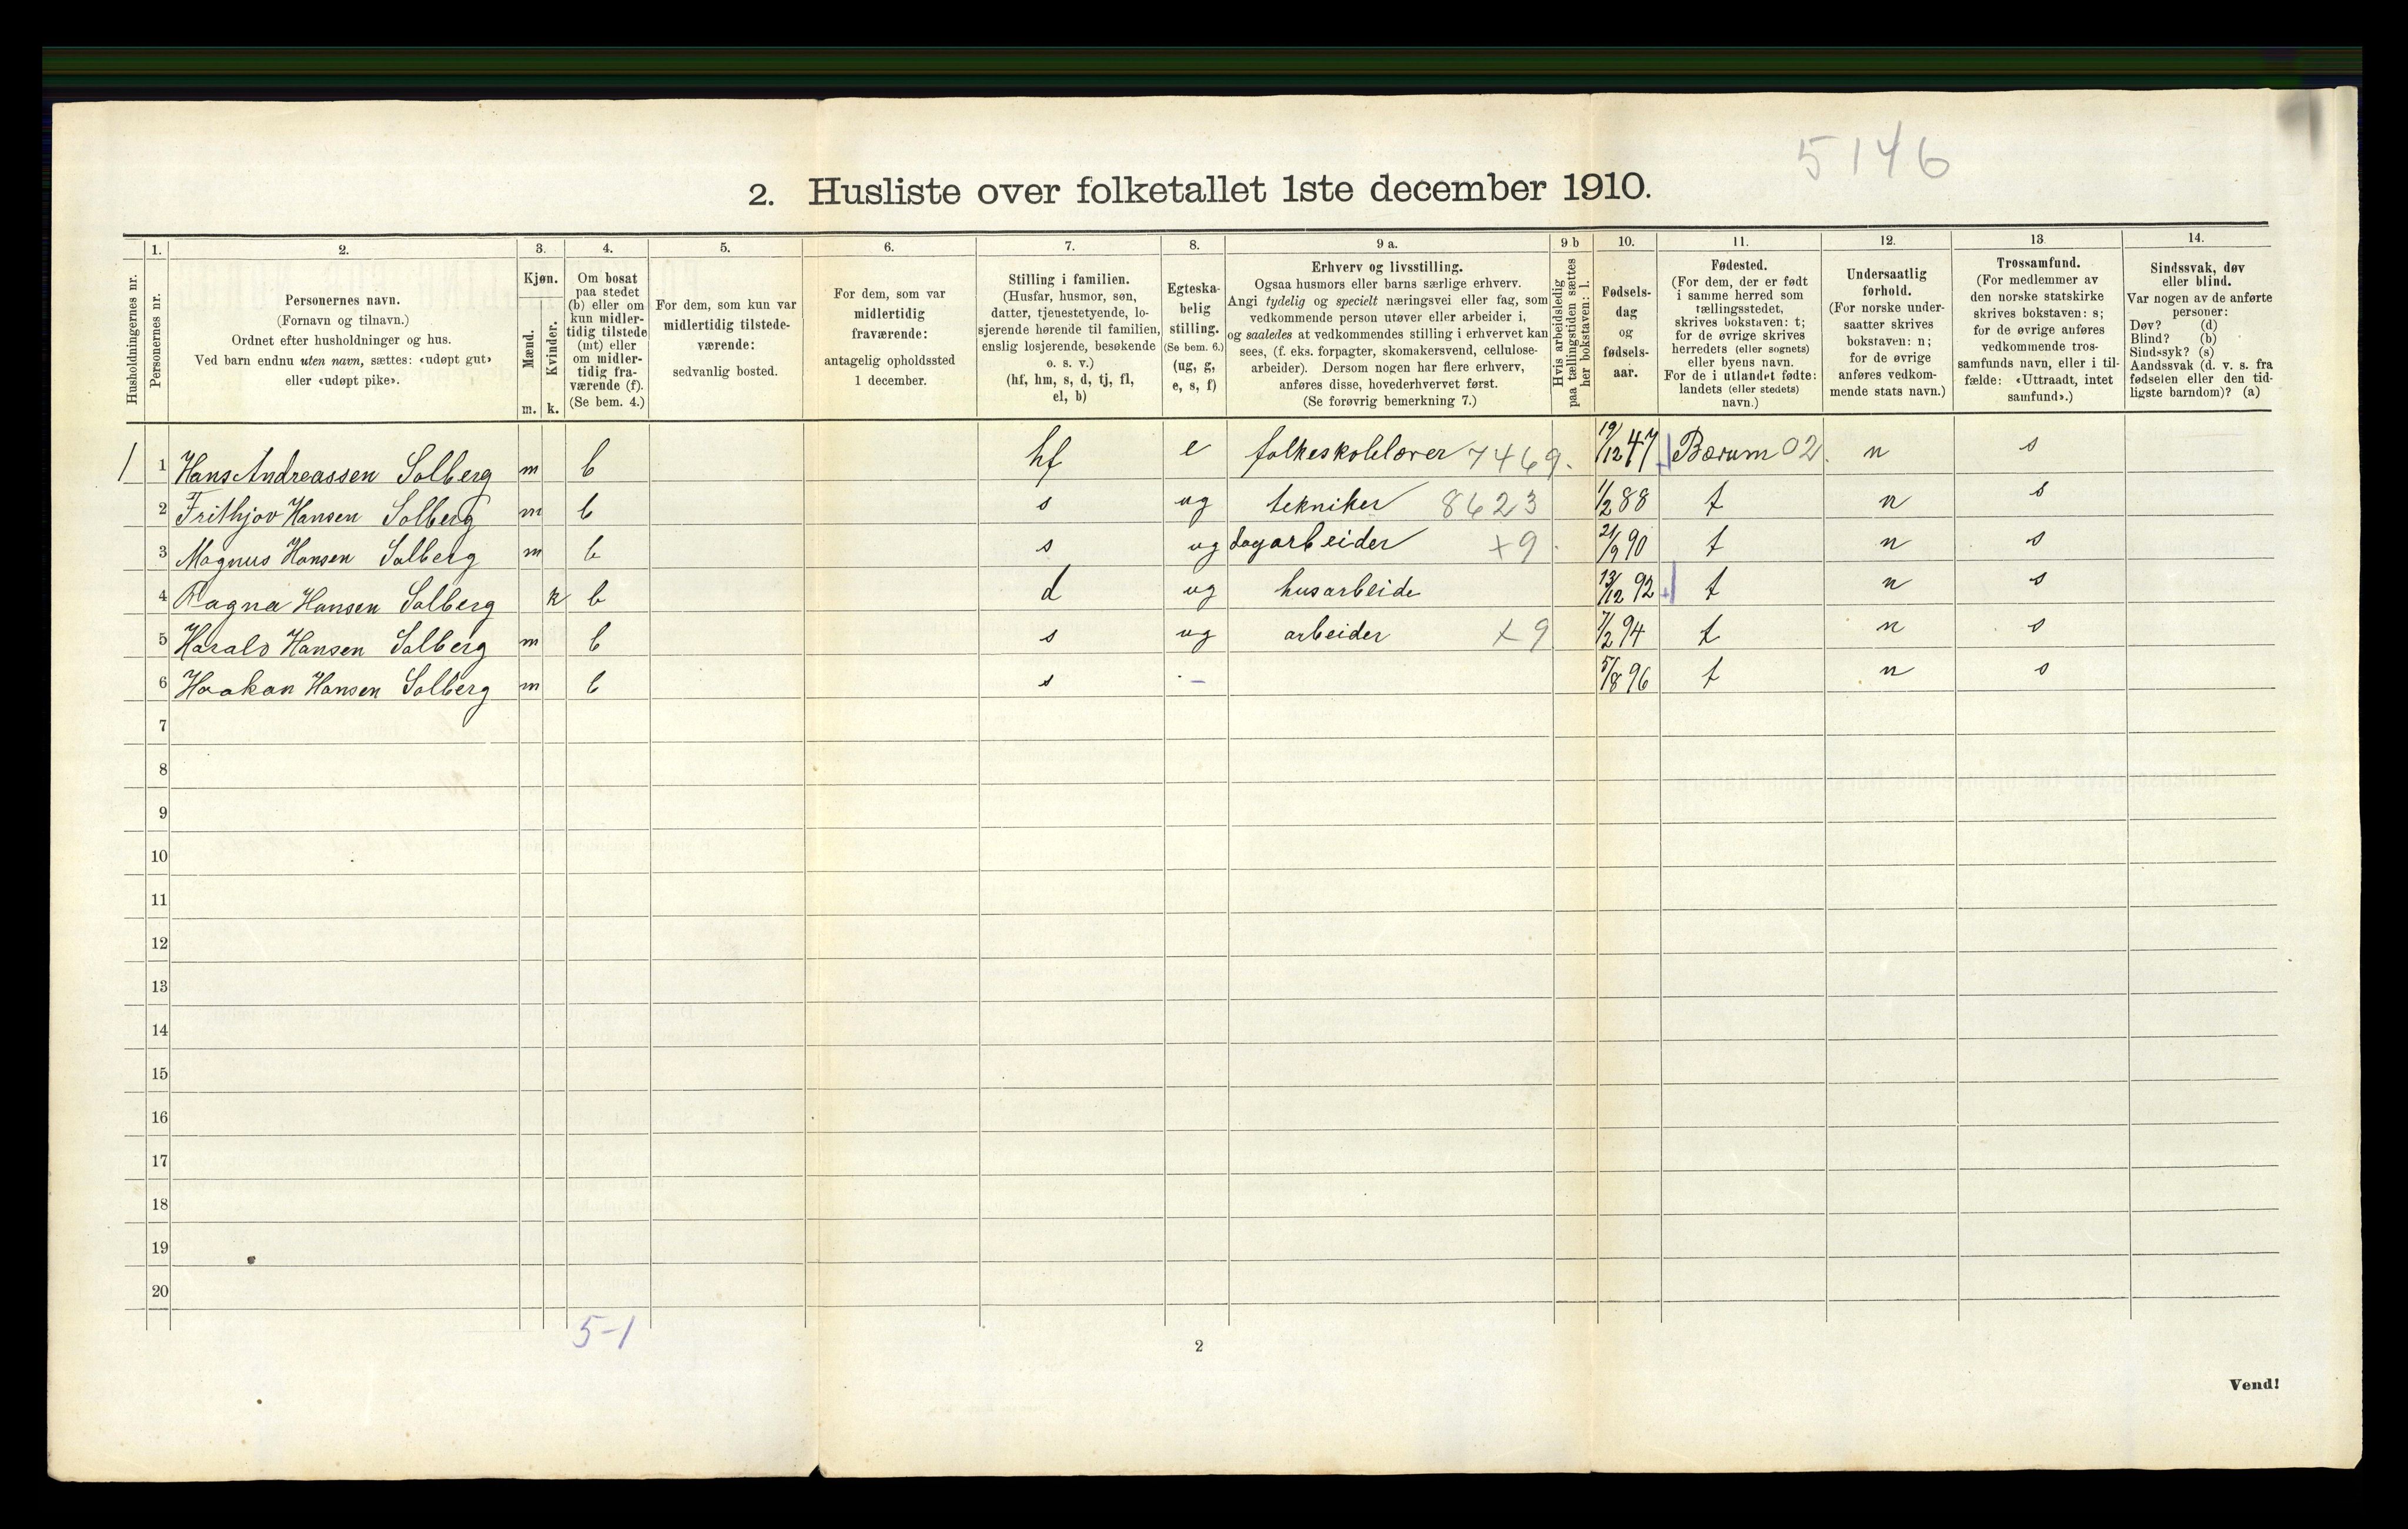 5146
2. Husliste over folketallet 1ste december 1910.
Husholdningernes nr.
1.
Personernes nr.
2.
Personernes navn.
(Fornavn og tilnavn.)
Ordnet efter husholdninger og hus.
Ved barn endnu uten navn, sættes: «udøpt gut»
eller «udøpt pike».
3.
Kjøn.
Mænd.
Kvinder.
m. k.
4.
Om bosat
paa stedet
(b) eller om
kun midler-
tidig tilstede
(mt) eller
om midler-
tidig fra-
værende (f).
(Se bem. 4.)
5.
For dem, som kun var
midlertidig tilstede-
værende:
sedvanlig bosted.
6.
For dem, som var
midlertidig
fraværende:
antagelig opholdssted
1 december.
7.
Stilling i familien.
(Husfar, husmor, søn,
datter, tjenestetyende, lo-
sjerende hørende til familien,
enslig losjerende, besøkende
o. s. v.)
(hf, hm, s, d, tj, fl,
el, b)
8.
Egteska-
belig
stilling.
(Se bem. 6.)
(ug, g,
e, s, f)
9 a.
Erhverv og livsstilling.
Ogsaa husmors eller barns særlige erhverv.
Angi tydelig og specielt næringsvei eller fag, som
vedkommende person utøver eller arbeider i,
og saaledes at vedkommendes stilling i erhvervet kan
sees, (f. eks. forpagter, skomakersvend, cellulose-
arbeider). Dersom nogen har flere erhverv,
anføres disse, hovederhvervet først.
(Se forøvrig bemerkning 7.)
9 b
Hvis arbeidsledig
paa tællingstiden sættes
her bokstaven: l.
10.
Fødsels-
dag
og
fødsels-
aar.
11.
Fødested.
(For dem, der er født
i samme herred som
tællingsstedet,
skrives bokstaven: t;
for de øvrige skrives
herredets (eller sognets)
eller byens navn.
For de i utlandet fødte:
landets (eller stedets)
navn.)
12.
Undersaatlig
forhold.
(For norske under-
saatter skrives
bokstaven: n;
for de øvrige
anføres vedkom-
mende stats navn.)
13.
Trossamfund.
(For medlemmer av
den norske statskirke
skrives bokstaven: s;
for de øvrige anføres
vedkommende tros-
samfunds navn, eller i til-
fælde: «Uttraadt, intet
samfund».)
14.
Sindssvak, døv
eller blind.
Var nogen av de anførte
personer:
Døv? (d)
Blind? (b)
Sindssyk? (s)
Aandssvak (d. v. s. fra
fødselen eller den tid-
ligste barndom)? (a)
1 1 Hans Andreassen Solberg m b hf e folkeskolelærer 7469. 19/12 47 Bærum 02. n s
2 Frithjov Hansen Solberg m b s ug tekniker 8623 1/2 88 t n s
3 Magnus Hansen Solberg m b s ug dagarbeider +9. 21/9 90 t n s
4 Ragna Hansen Solberg k b d ug husarbeide 13/12 92 t n s
5 Harald Hansen Solberg m b s ug arbeider +9 7/2 94 t n s
6 Haakon Hansen Solberg m b s - 5/8 96 t n s
7
8
9
10
11
12
13
14
15
16
17
18
19
20
5-1
2
Vend!